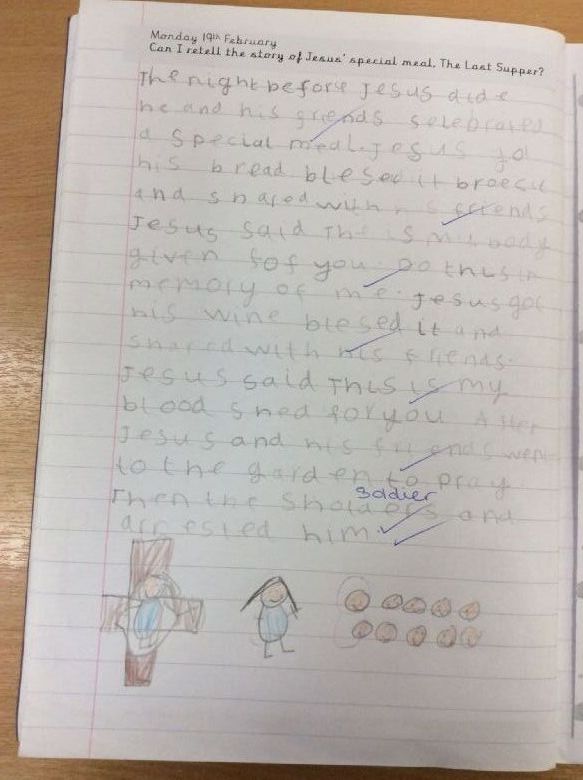 Monday 19th February
Can I retell the story of Jesus' special meal, The Last Supper?
The night before Jesus did e
he and his friends selebrated
a special meal. Jesus got
his bread blesed it
and shared with his friends
Jesus said The is my body
given fof you. Do this in
memory of me. Jesus got
his wine blesed it and
shared with his friends.
Jesus said This is my
blood shed for you After
Jesus and his friends went
to the garden to pray
soldier
Then the and
arrested him.